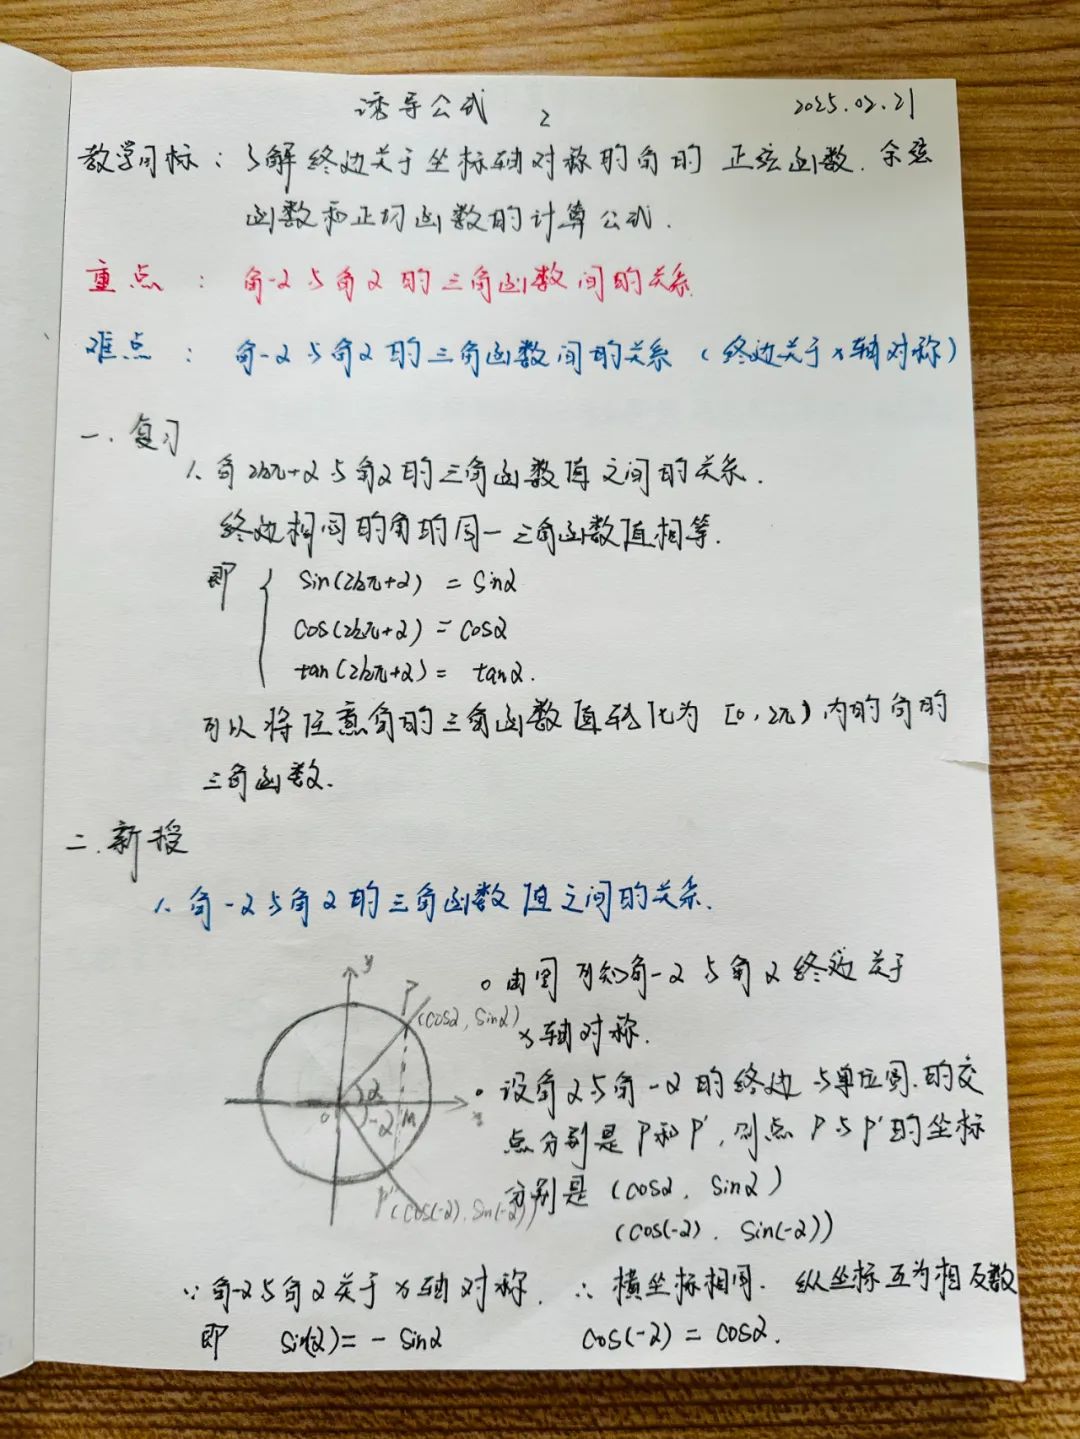 诱导公式 2 2025.02.21
教学目标：了解终边关于坐标轴对称的角的正弦函数.余弦
函数和正切函数的计算公式.
重点：角-α与角α的三角函数间的关系.
难点：角-α与角α的三角函数间的关系（终边关于x轴对称）
一.复习
1.角2kπ+α与角α的三角函数值之间的关系.
终边相同的角的同一三角函数值相等.
即 { sin(2kπ+α) = sinα
cos(2kπ+α) = cosα
tan(2kπ+α) = tanα.
可以将任意角的三角函数值转化为[0,2π)内的角的
三角函数.
二.新授
1.角-α与角α的三角函数值之间的关系.
y
P
(cosα, sinα)
α
-α
O
M
x
P'
(cos(-α).sin(-α))
。由图可知角-α与角α终边关于
x轴对称.
• 设角α与角-α的终边与单位圆.的交
点分别是P和P',则点P与P'的坐标
分别是(cosα, sinα)
(cos(-α). sin(-α))
∵角-α与角α关于x轴对称. ∴横坐标相同. 纵坐标互为相反数
即 sin(α)= - sinα cos(-α) = cosα.